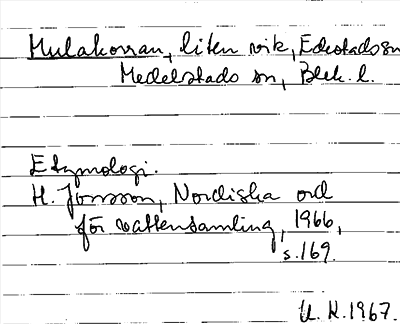 Mulakorran, liten vik, Edestads sn
Medelstads sn, Blek. l.
Etymologi.
H. Jonsson, Nordiska ord
för vattensamling, 1966,
s.169.
U. K. 1967.